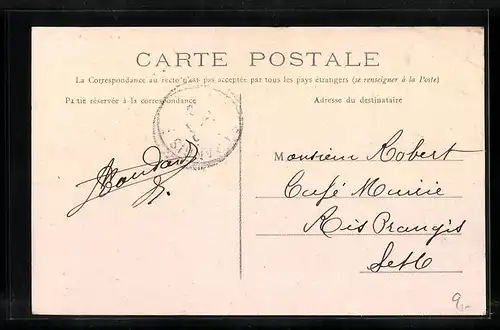 CARTE POSTALE
La Correspondance au recto n'est pas acceptée par tous les pays étrangers (se renseigner à la Poste)
Partie réservée à la correspondance
Adresse du destinataire
Monsieur Robert
Café Mairie
Ris Orangis
S et O
9,-